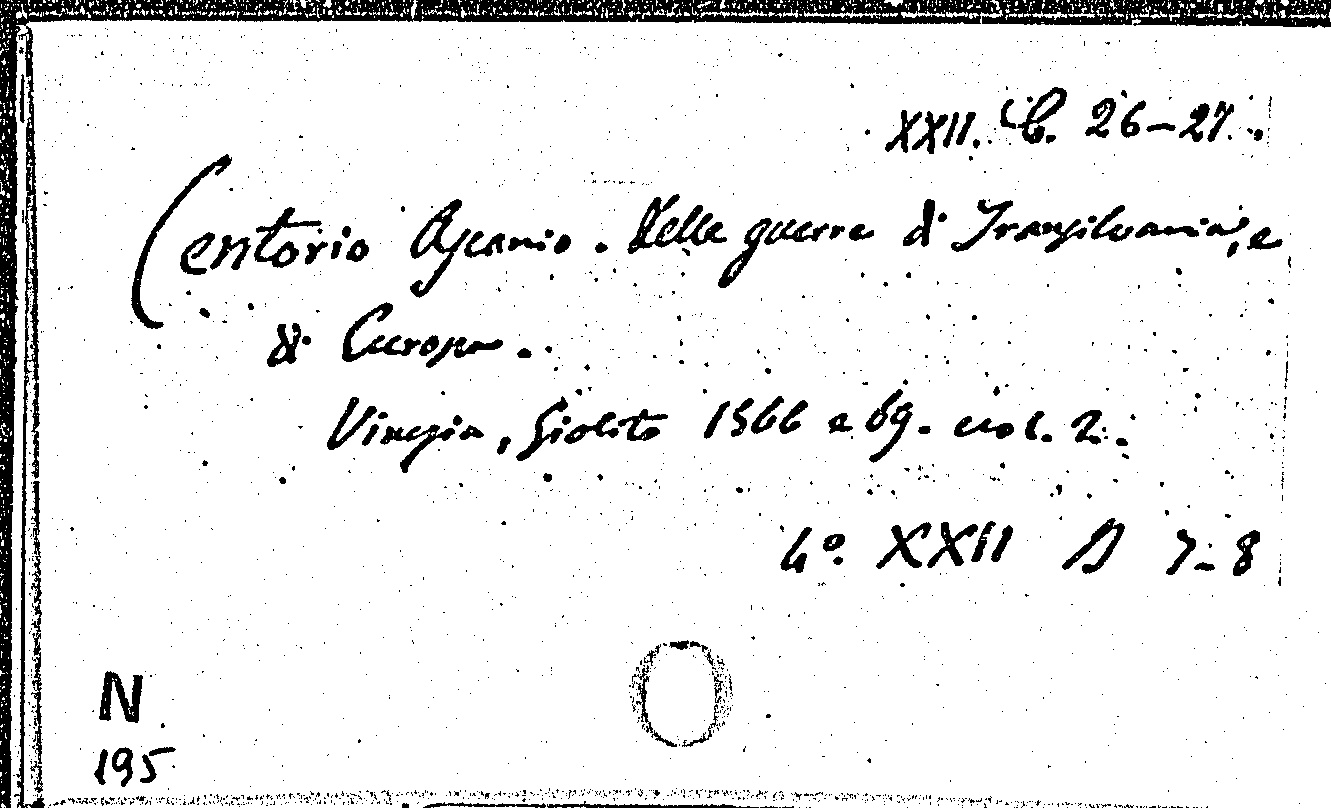 XXII. C. 26-27.
Centorio Ascanio. Delle guerre di Transilvania, e
di Europa.
Vinegia, Giolito 1566 e 69. vol. 2.
4º. XXII D 7-8
N
195